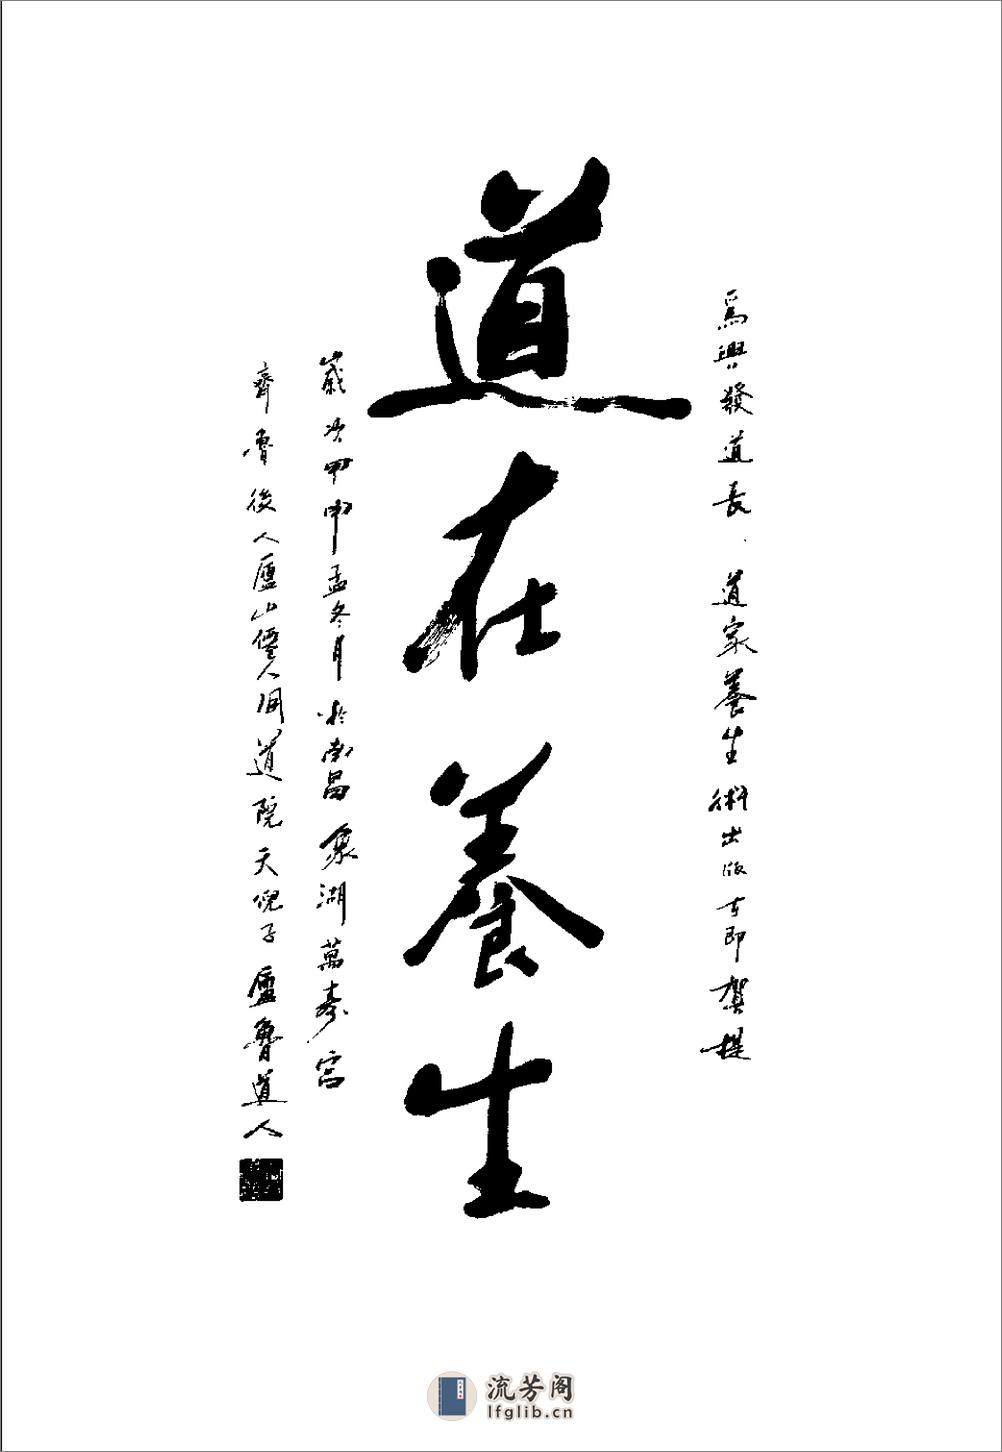 為興發道長、道家養生術出版在即賀提
道在養生
歲次甲申孟冬月於南昌象湖萬壽宮
齊魯後人廬山僊人洞道院天倪子廬魯道人
流芳阁
lfglib.cn